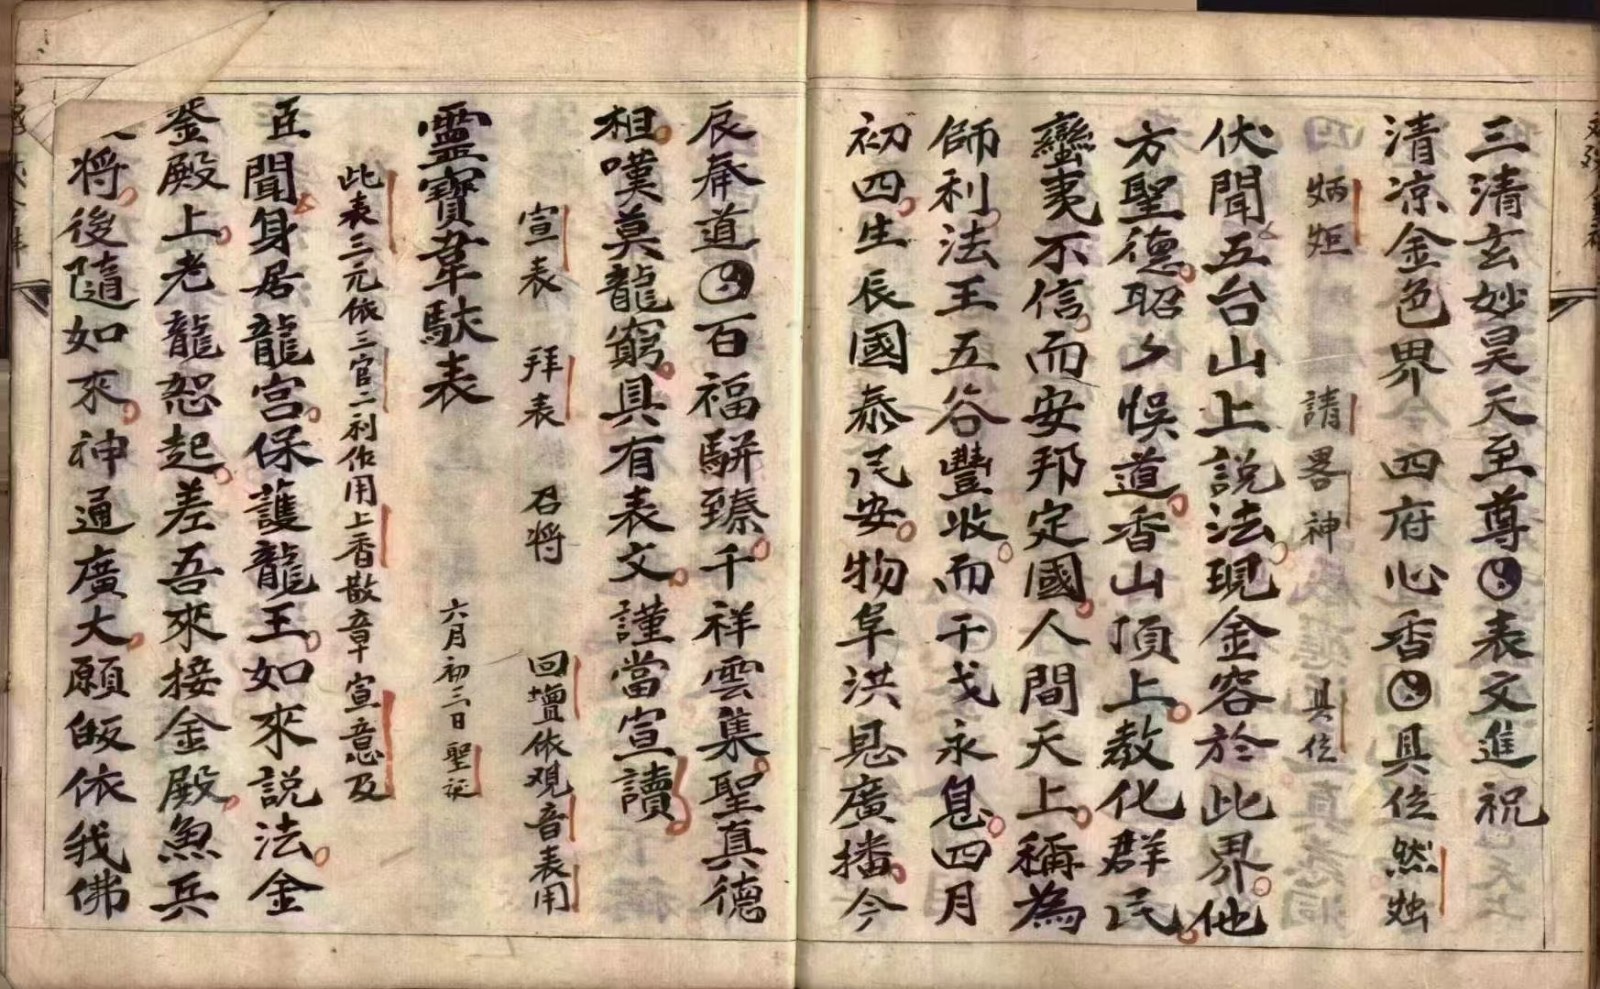 三清玄妙昊天至尊 表文進祝
清凉金色界四府心香 具位然烛
炳炬 請畧神 具位
伏聞五台山上說法現金容於此界他
方聖德昭々悮道香山頂上教化群民
蠻夷不信而安邦定國人間天上稱為
師利法王五谷豐收而干戈永息四月
初四生辰國泰民安物阜洪恩廣播今
辰奉道 百福駢臻千祥雲集聖真德
相嘆莫龍窮具有表文謹當宣讀
宣表 拜表 召將 回壇依观音表用
靈寶韋馱表 六月初三日聖誕
此表三元依三官二利作用上香散章宣意及
臣聞身居龍宮保護龍王如來說法金
釜殿上老龍恕起差吾來接金殿魚兵
將後隨如來神通廣大願皈依我佛